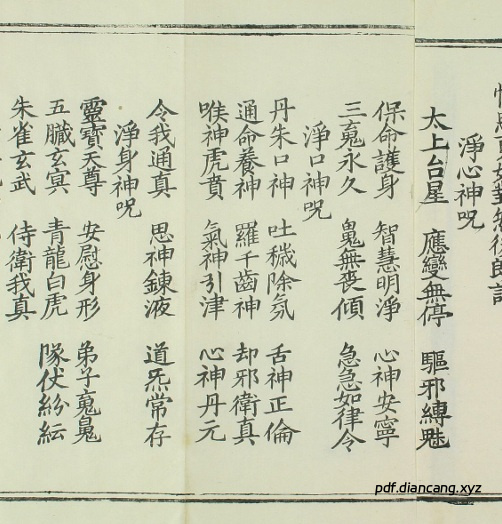 淨心神呪
太上台星 應變無停 驅邪縛魅
保命護身 智慧明淨 心神安寧
三䰟永久 鬽無喪傾 急急如律令
淨口神呪
丹朱口神 吐穢除氛 舌神正倫
通命養神 羅千齒神 却邪衛真
喉神虎賁 氣神引津 心神丹元
令我通真 思神鍊液 道炁常存
淨身神呪
靈寶天尊 安慰身形 弟子䰟鬽
五臟玄冥 青龍白虎 隊伏紛紜
朱雀玄武 侍衛我真
pdf.diancang.xyz